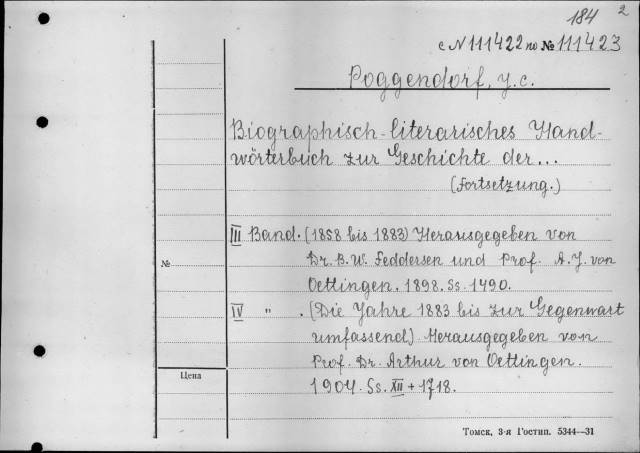 184 2
с N 111422 по № 111423
Poggendorf, J. C.
Biographisch-literarisches Hand-
wörterbuch zur Geschichte der...
(Fortsetzung.)
III Band. (1858 bis 1883) Herausgegeben von
№
Dr. B. W. Feddersen und Prof. A. J. von
Oettingen. 1898. Ss. 1490.
IV " . (Die Jahre 1883 bis zur Gegenwart
umfassend) Herausgegeben von
Prof. Dr. Arthur von Oettingen.
Цена
1904. Ss. XII + 1718.
Томск, 3-я Гостип. 5344—31